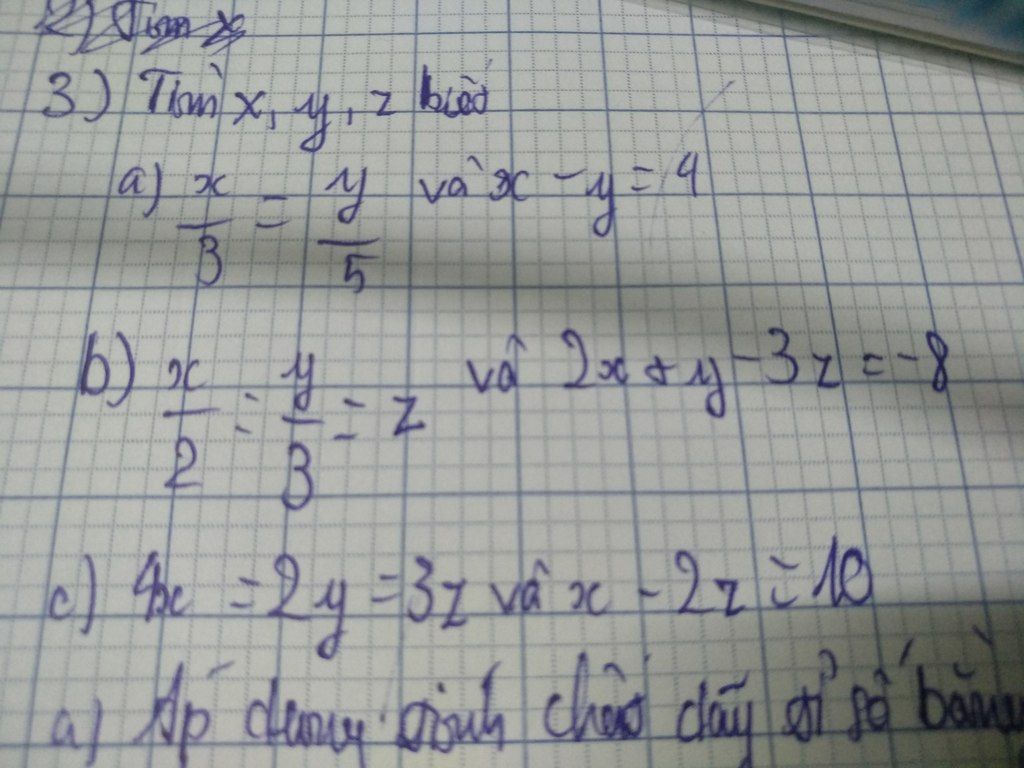 3) Tìm x, y, z biết
a) x/3 = y/5 và x - y = 4
b) x/2 = y/3 = z và 2x + y - 3z = -8
c) 4x = 2y = 3z và x - 2z = 10
a) Áp dụng tính chất dãy tỉ số bằng